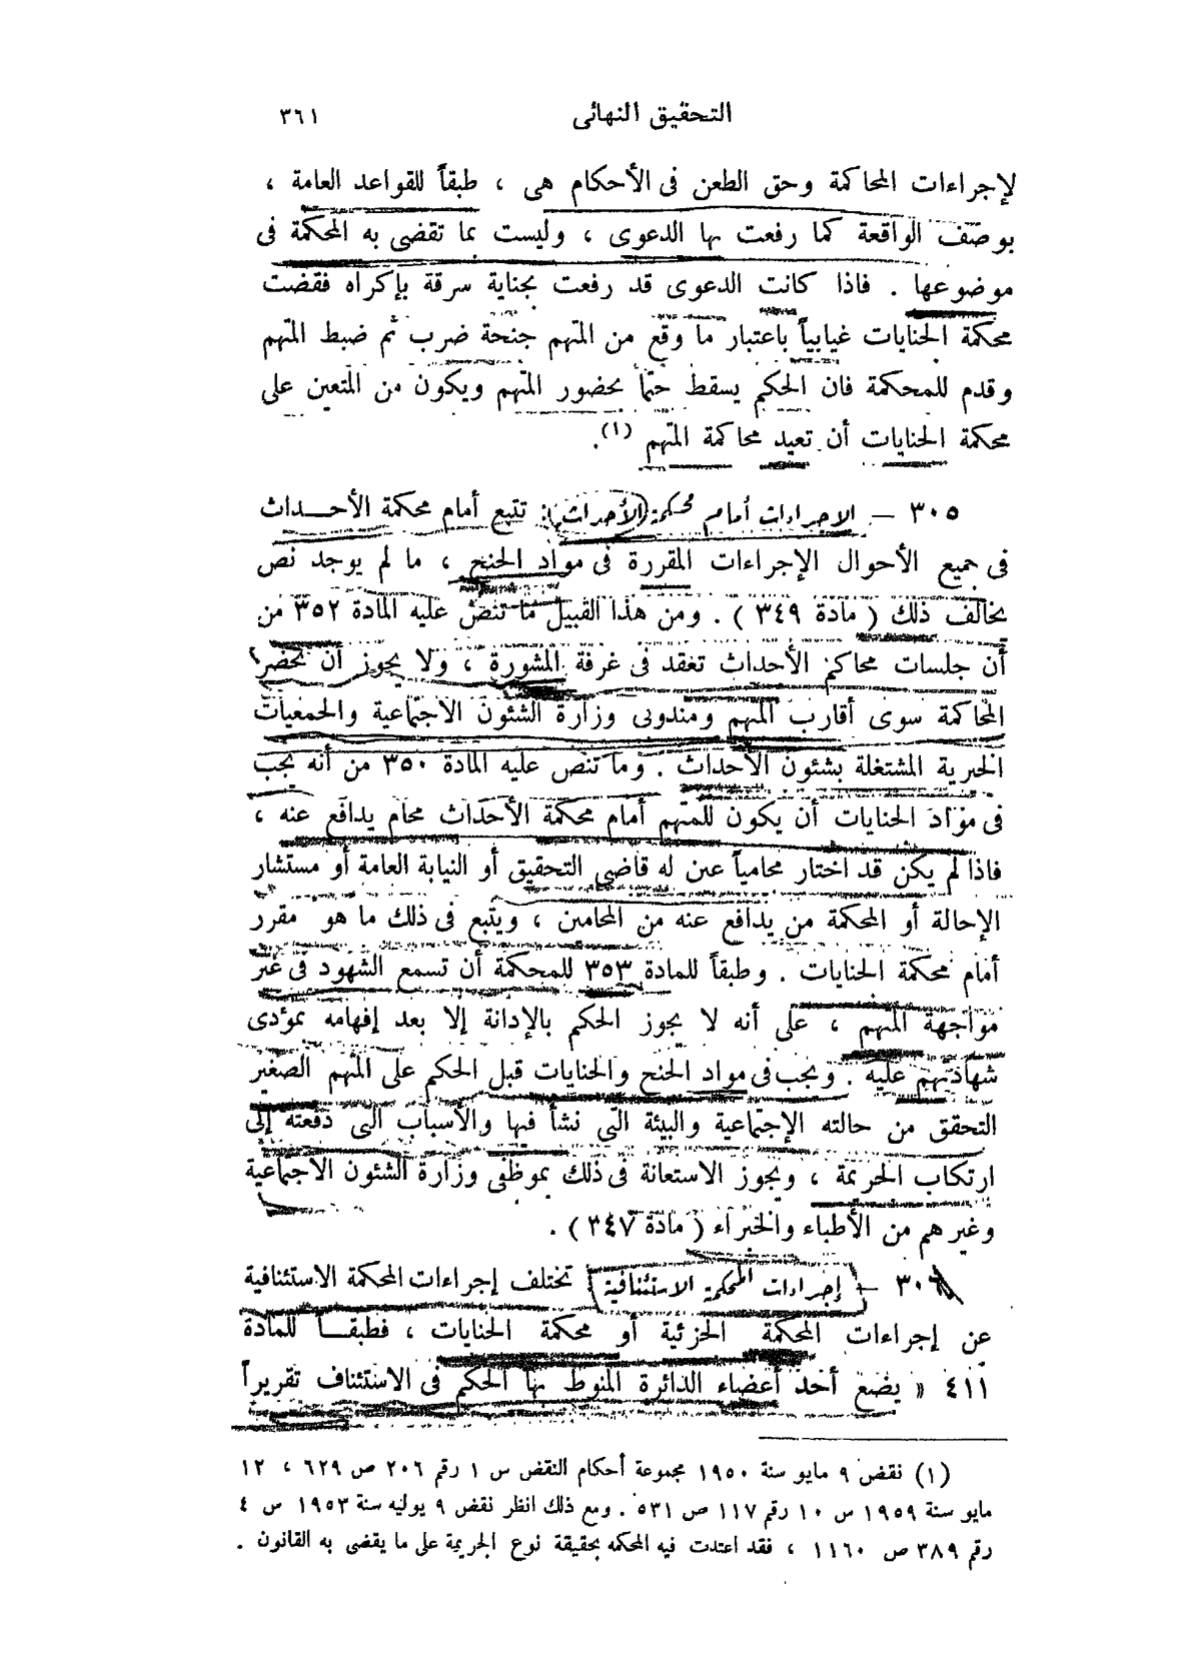 التحقيق النهائى ٣٦١
لإجراءات المحاكمة وحق الطعن فى الأحكام هى ، طبقاً للقواعد العامة ،
بوصف الواقعة كما رفعت بها الدعوى ، وليست بما تقضى به المحكمة فى
موضوعها . فاذا كانت الدعوى قد رفعت بجناية سرقة بإكراه فقضت
محكمة الجنايات غيابياً باعتبار ما وقع من المتهم جنحة ضرب ثم ضبط المتهم
وقدم للمحكمة فان الحكم يسقط حتماً بحضور المتهم ويكون من المتعين على
محكمة الجنايات أن تعيد محاكمة المتهم (١).
٣٠٥ — الإجراءات أمام محكمة (الأحداث): تتبع أمام محكمة الأحــداث
فى جميع الأحوال الإجراءات المقررة فى مواد الجنح ، ما لم يوجد نص
يخالف ذلك ( مادة ٣٤٩ ) . ومن هذا القبيل ما تنص عليه المادة ٣٥٢ من
أن جلسات محاكم الأحداث تعقد فى غرفة المشورة ، ولا يجوز أن يحضر
المحاكمة سوى أقارب المتهم ومندوبى وزارة الشئون الاجتماعية والجمعيات
الخيرية المشتغلة بشئون الأحداث . وما تنص عليه المادة ٣٥٠ من أنه يجب
فى مواد الجنايات أن يكون للمتهم أمام محكمة الأحداث محام يدافع عنه ،
فاذا لم يكن قد اختار محامياً عين له قاضى التحقيق أو النيابة العامة أو مستشار
الإحالة أو المحكمة من يدافع عنه من المحامين ، ويتبع فى ذلك ما هو مقرر
أمام محكمة الجنايات . وطبقاً للمادة ٣٥٣ للمحكمة أن تسمع الشهود فى غير
مواجهة المتهم ، على أنه لا يجوز الحكم بالإدانة إلا بعد إفهامه بمؤدى
شهادتهم عليه . ويجب فى مواد الجنح والجنايات قبل الحكم على المتهم الصغير
التحقق من حالته الإجتماعية والبيئة التى نشأ فيها والأسباب التى دفعته إلى
ارتكاب الجريمة ، ويجوز الاستعانة فى ذلك بموظفى وزارة الشئون الاجتماعية
وغيرهم من الأطباء والخبراء ( مادة ٣٤٧ ) .
٣٠٦ — إجراءات المحكمة الاستئنافية : تختلف إجراءات المحكمة الاستئنافية
عن إجراءات المحكمة الجزئية أو محكمة الجنايات ، فطبقــاً للمادة
٤١١ « يضع أحد أعضاء الدائرة المنوط بها الحكم فى الاستئناف تقريراً
(١) نقض ٩ مايو سنة ١٩٥٠ مجموعة أحكام النقض س ١ رقم ٢٠٦ ص ٦٢٩ ، ١٢
مايو سنة ١٩٥٩ س ١٠ رقم ١١٧ ص ٥٣١ . ومع ذلك انظر نقض ٩ يوليه سنة ١٩٥٣ س ٤
رقم ٣٨٩ ص ١١٦٠ ، فقد اعتدت فيه المحكمه بحقيقة نوع الجريمة على ما يقضى به القانون .